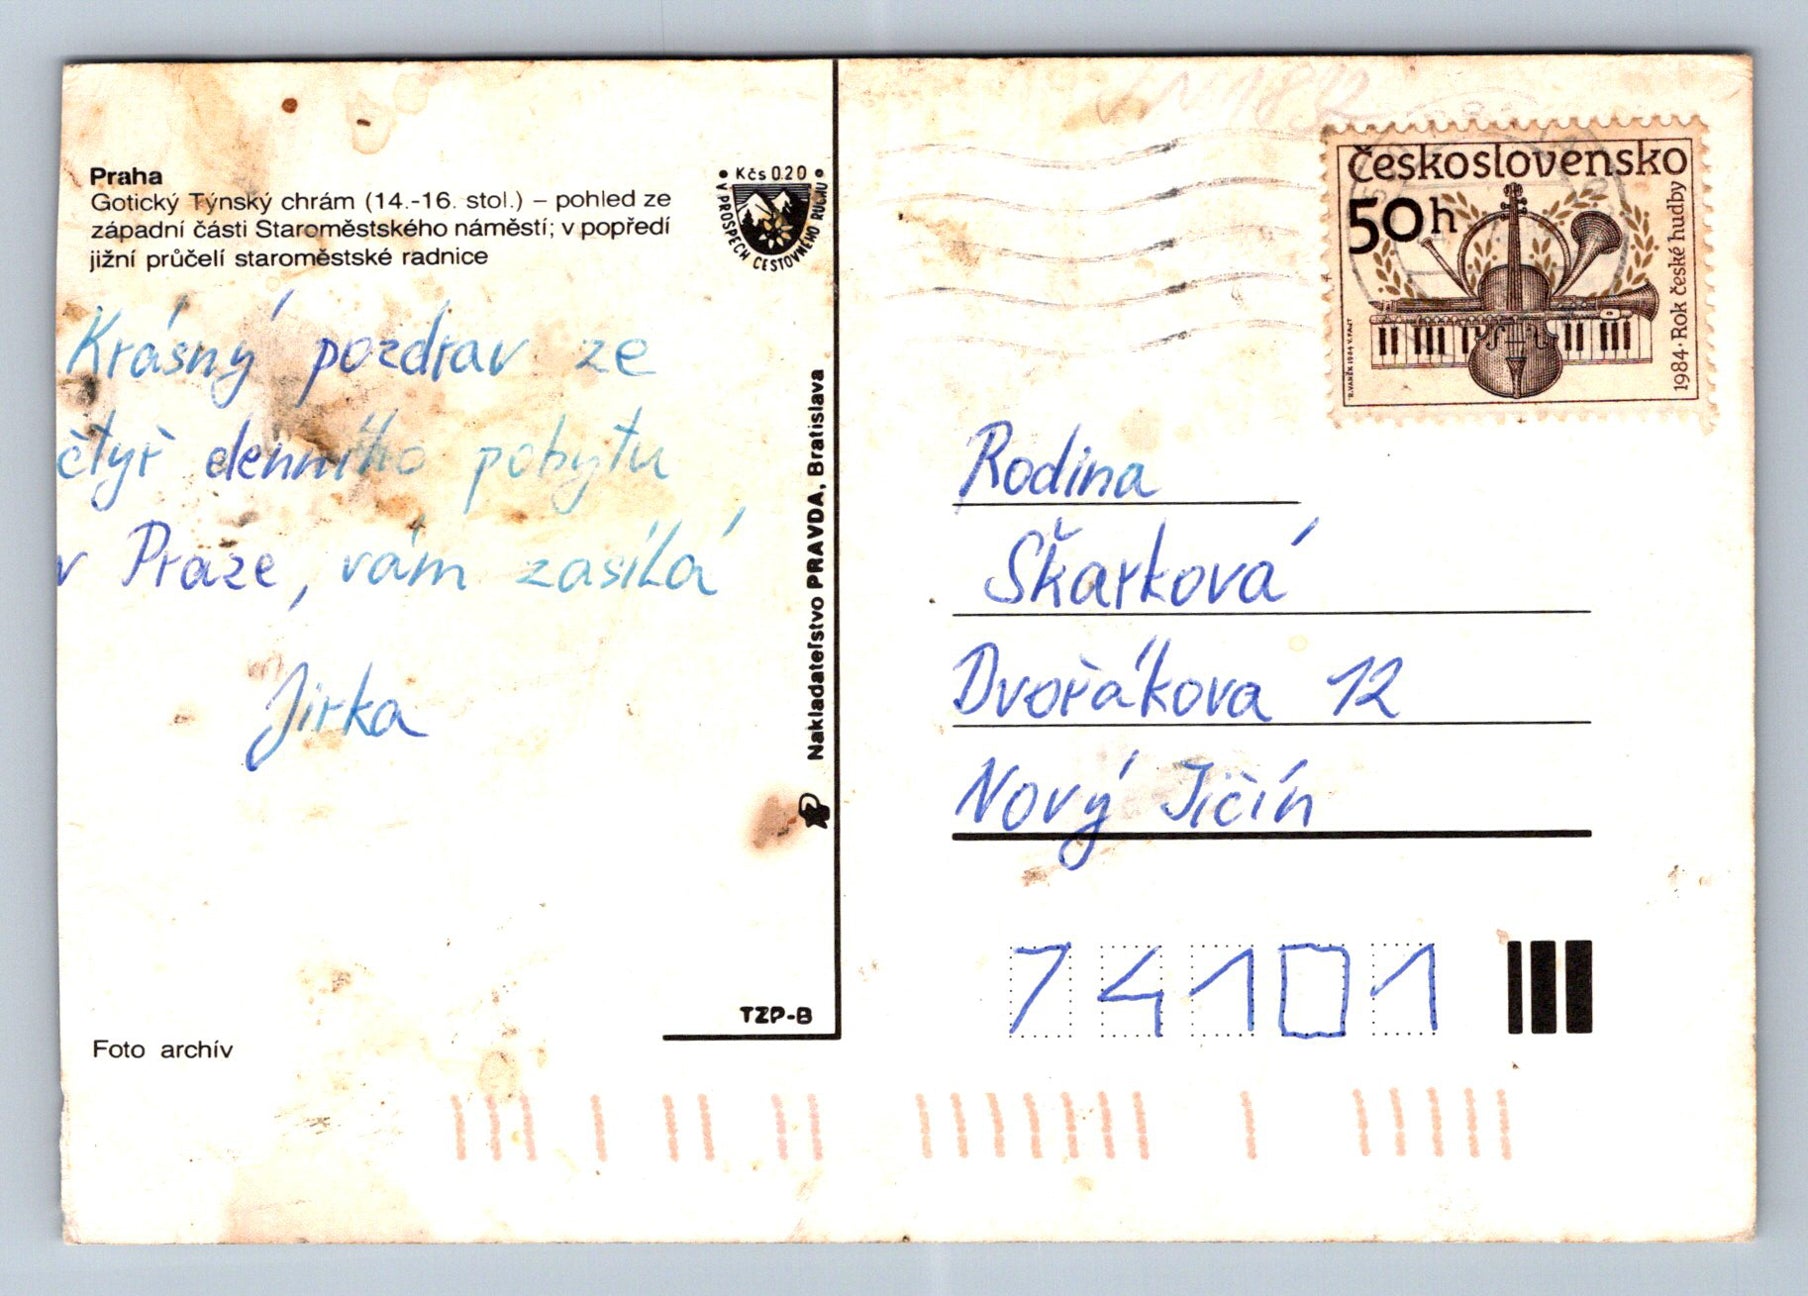 Praha
Gotický Týnský chrám (14.-16. stol.) – pohled ze
západní části Staroměstského náměstí; v popředí
jižní průčelí staroměstské radnice
• Kčs 0.20 •
V PROSPĚCH CESTOVNÉHO RUCHU
Krásný pozdrav ze
čtyř denního pobytu
v Praze, vám zasílá
Jirka
Nakladateľstvo PRAVDA, Bratislava
TZP-B
Foto archív
Československo
50h
1984·Rok české hudby
Rodina
Škarková
Dvořákova 12
Nový Jičín
74101